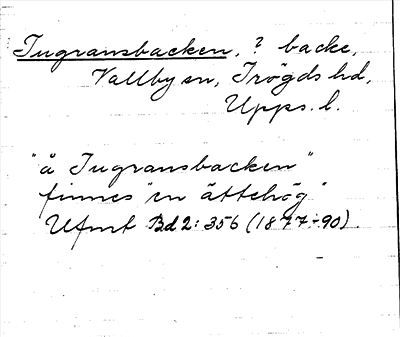 Tugransbacken, ? backe,
Vallby sn, Trögds hd,
Upps. l.
"å Tugransbacken"
finnes "en ättehög"
Ufmt Bd 2: 356 (1877-90).